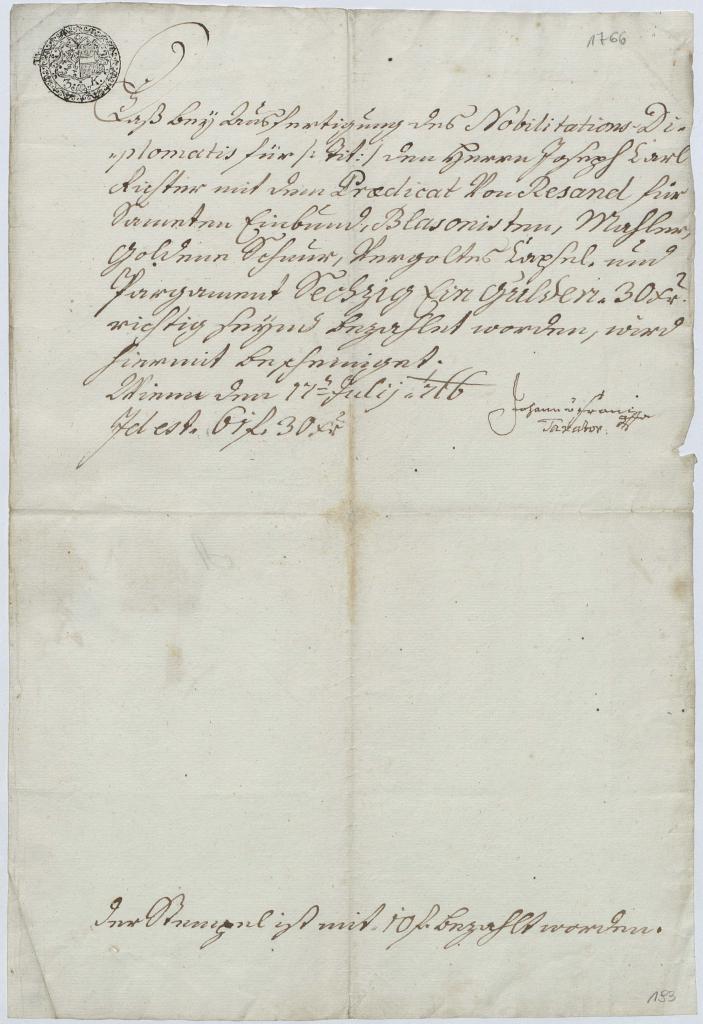 1766
Daß bey Ausfertigung des Nobilitations-Di-
plomatis für /: Tit: / den Herrn Joseph Carl
Richter mit dem Prædicat Von Resand für
Sameten Einbund, Blasonisten, Mahler,
Goldene Schnur, Vergoltes Capsel, und
Pargament Sechzig Ein Gulden. 30 Xr.
richtig seynd bezahlet worden, wird
hiermit bescheiniget.
Wienn den 17ten Julij 1766
Id est. 61 f. 30 xr
Johann
Taxator.
der Stempel ist mit 10 f. bezahlt worden.
193